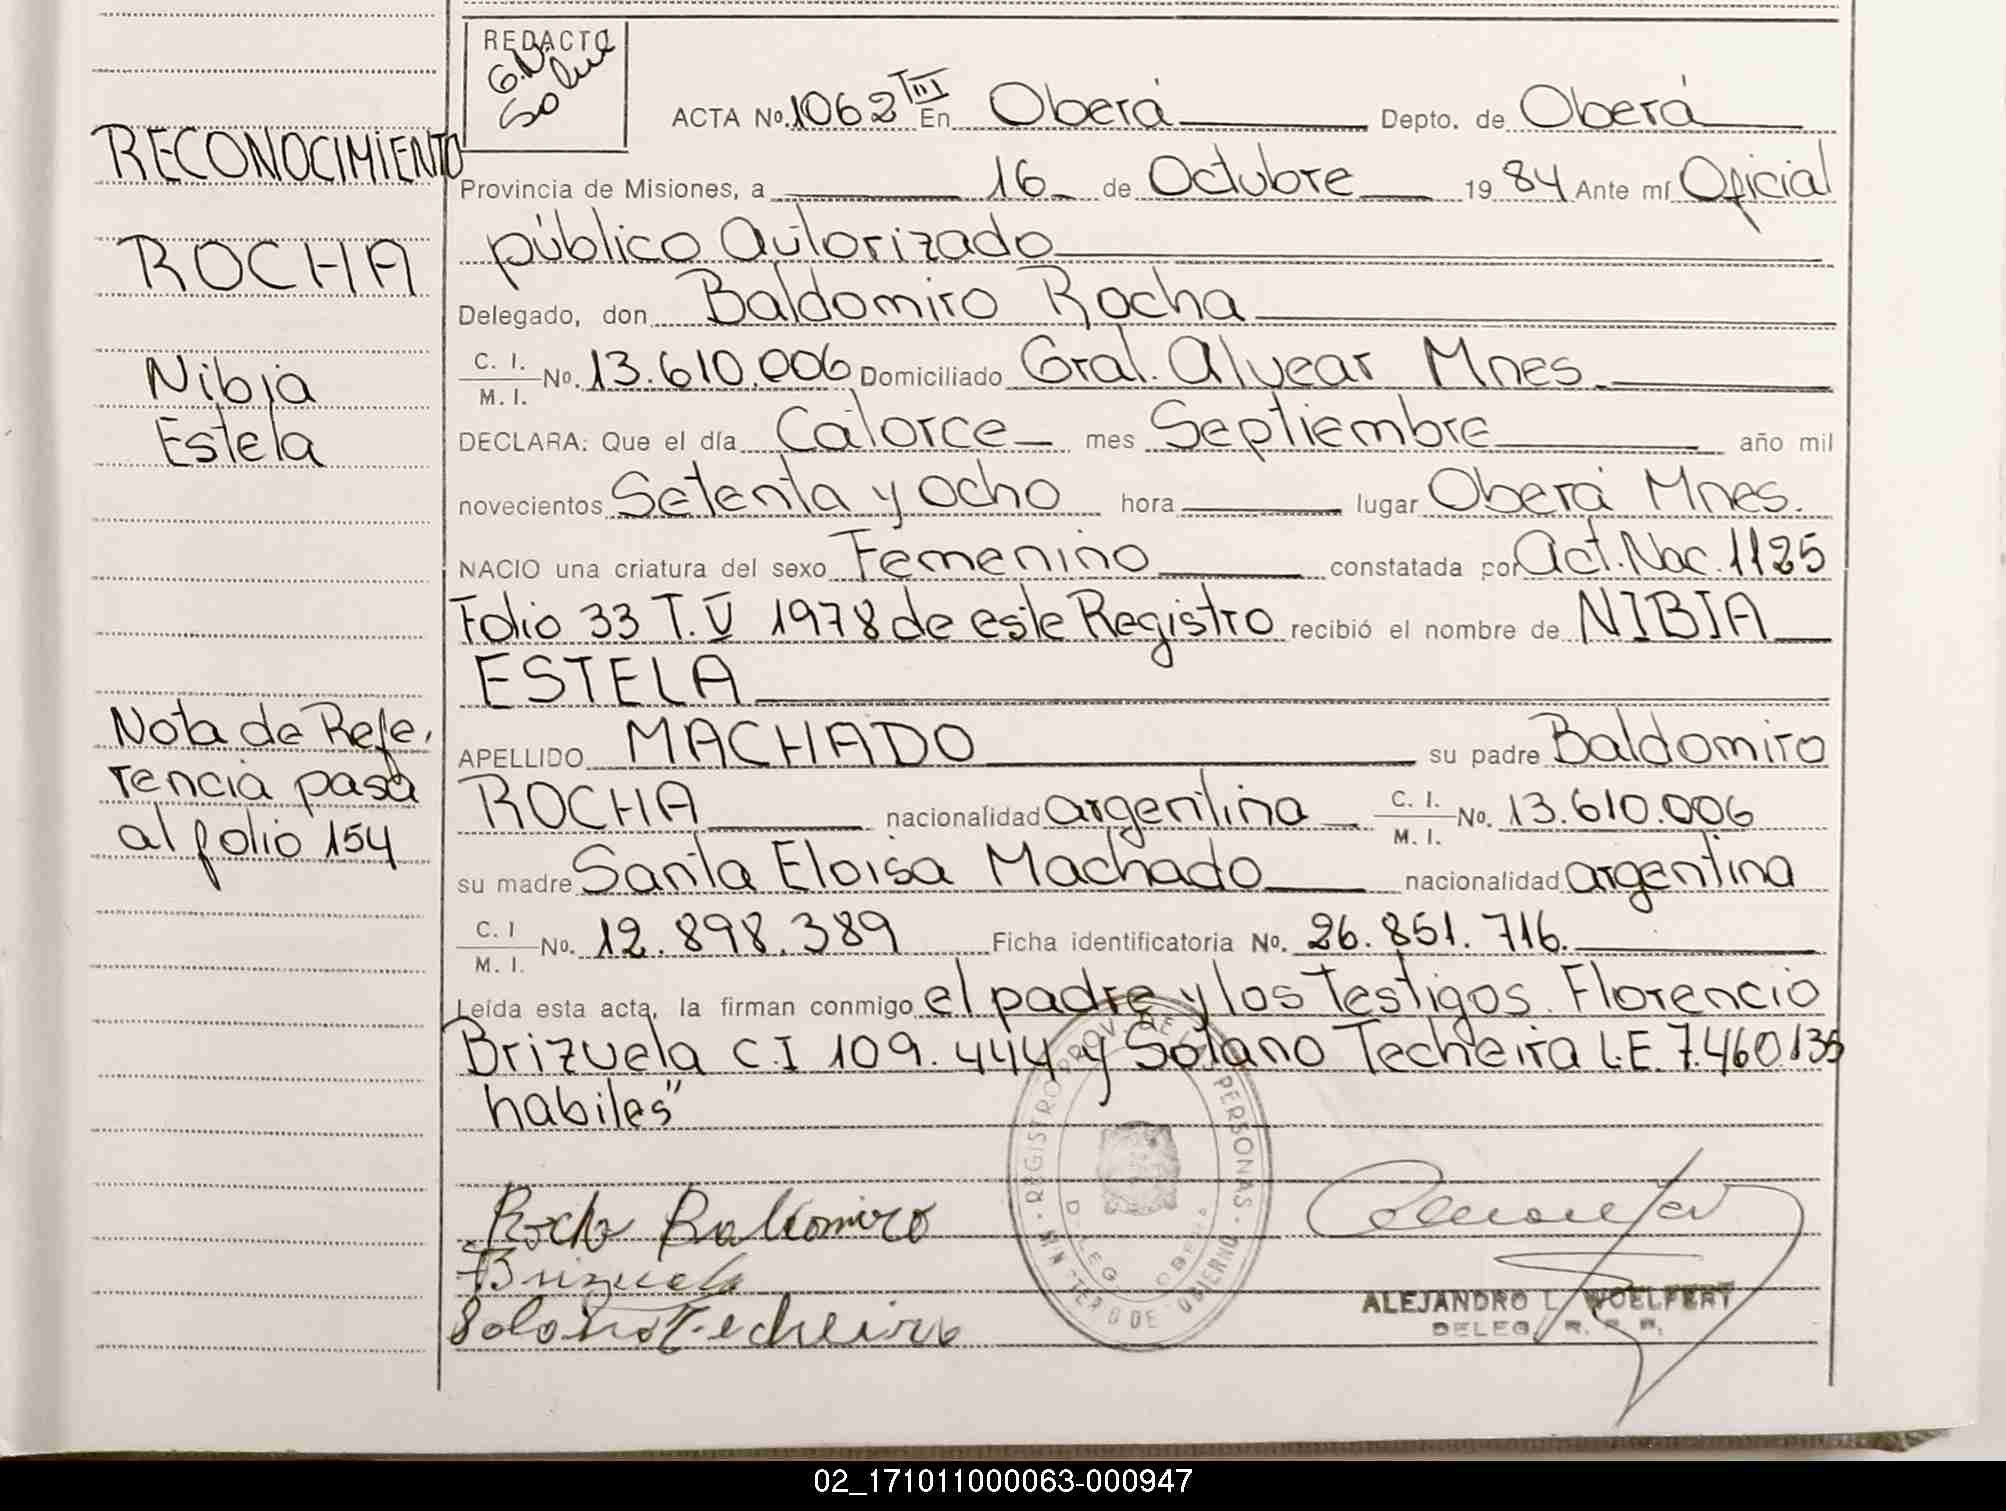 REDACTO
G.N.
ACTA No. 1062 TIII En Oberá Depto. de Oberá
RECONOCIMIENTO
Provincia de Misiones, a 16 de Octubre 19 84 Ante mí Oficial
público Autorizado
ROCHA
Delegado, don Baldomiro Rocha
Nibia
C. I.
M. I.
No. 13.610.006 Domiciliado Gral. Alvear Mnes.
Estela
DECLARA: Que el día Catorce mes Septiembre año mil
novecientos Setenta y ocho hora lugar Oberá Mnes.
NACIO una criatura del sexo Femenino constatada por Act. Nac. 1125
Folio 33 T. V 1978 de este Registro recibió el nombre de NIBIA
ESTELA
Nota de Refe,
rencia pasa
al folio 154
APELLIDO MACHADO su padre Baldomiro
ROCHA nacionalidad argentina C. I.
M. I. No. 13.610.006
su madre Santa Eloisa Machado nacionalidad argentina
C. I
M. I. No. 12.898.389 Ficha identificatoria No. 26.851.716.
Leída esta acta, la firman conmigo el padre y los Testigos Florencio
Brizuela C.I 109.444 y Solano Techeira L.E. 7.460.135
habiles"
REGISTRO PROV. DE LAS PERSONAS
MINISTERIO DE GOBIERNO
DELEG. OBERA
Rocha Baldomiro
F Brizuela
Solano Techeira
ALEJANDRO L. WOELFERT
DELEG. R. P. P.
02_171011000063-000947